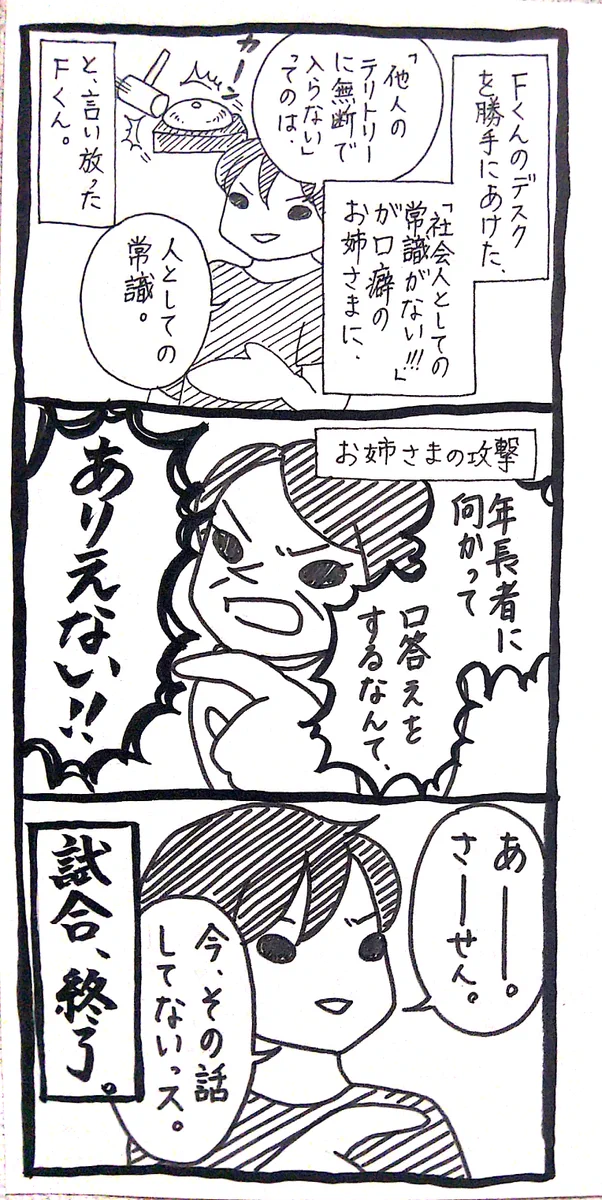 Fくんのデスク
を勝手にあけた、
「社会人としての
常識がない!!!」
が口癖の
お姉さまに、
「他人の
テリトリー
に無断で
入らない」
ってのは、
カーン
人としての
常識。
と、言い放った
Fくん。
お姉さまの攻撃
年長者に
向かって
口答えを
するなんて、
ありえない!!
あーー。
さーせん。
今、その話
してないっス。
試合、終了。